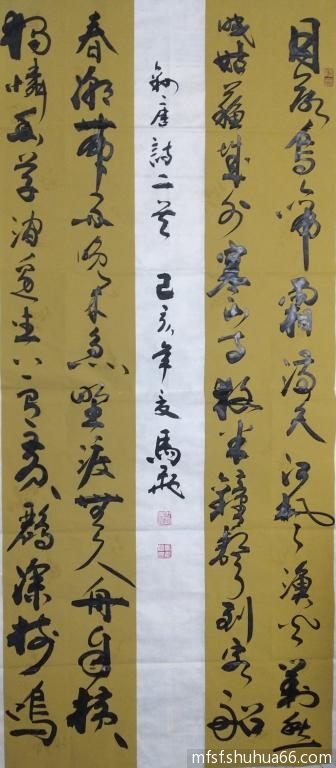 月落烏啼霜满天江枫渔火對愁
眠姑蘇城外寒山寺夜半鐘聲到客船
録唐詩二首 己亥年夏 馬
春潮帶雨晚来急野渡無人舟自横
獨憐幽草澗邊生上有黄鸝深樹鳴
mfsfshuhua66.com